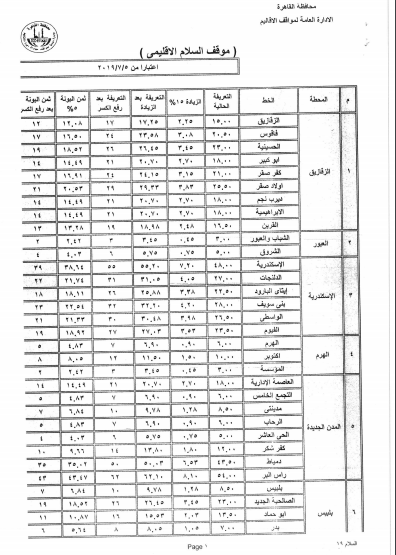 محافظة القاهرة
الادارة العامة لمواقف الاقاليم
( موقف السلام الاقليمى )
اعتبارا من ٢٠١٩/٧/٥
م المحطة الخط التعريفة الحالية الزيادة ١٥% التعريفة بعد الزيادة التعريفة بعد رفع الكسر ثمن البونة ٥% ثمن البونة بعد رفع الكسر
١ الزقازيق الزقازيق ١٥,٠٠ ٢,٢٥ ١٧,٢٥ ١٧ ١٢,٠٨ ١٢
فاقوس ٢٠,٥٠ ٣,٠٨ ٢٣,٥٨ ٢٤ ١٦,٥٠ ١٧
الحسينية ٢٣,٠٠ ٣,٤٥ ٢٦,٤٥ ٢٦ ١٨,٥٢ ١٩
ابو كبير ١٨,٠٠ ٢,٧٠ ٢٠,٧٠ ٢١ ١٤,٤٩ ١٤
كفر صقر ٢١,٠٠ ٣,١٥ ٢٤,١٥ ٢٤ ١٦,٩١ ١٧
اولاد صقر ٢٥,٥٠ ٣,٨٣ ٢٩,٣٣ ٢٩ ٢٠,٥٣ ٢١
ديرب نجم ١٨,٠٠ ٢,٧٠ ٢٠,٧٠ ٢١ ١٤,٤٩ ١٤
الابراهيمية ١٨,٠٠ ٢,٧٠ ٢٠,٧٠ ٢١ ١٤,٤٩ ١٤
القرين ١٦,٥٠ ٢,٤٨ ١٨,٩٨ ١٩ ١٣,٢٨ ١٣
٢ العبور الشباب والعبور ٣,٠٠ ٠,٤٥ ٣,٤٥ ٣ ٢,٤٢ ٢
الشروق ٥,٠٠ ٠,٧٥ ٥,٧٥ ٦ ٤,٠٣ ٤
٣ الإسكندرية الإسكندرية ٤٨,٠٠ ٧,٢٠ ٥٥,٢٠ ٥٥ ٣٨,٦٤ ٣٩
الدلنجات ٢٧,٠٠ ٤,٠٥ ٣١,٠٥ ٣١ ٢١,٧٤ ٢٢
إيتاى البارود ٢٢,٥٠ ٣,٣٨ ٢٥,٨٨ ٢٦ ١٨,١١ ١٨
بنى سويف ٢٨,٠٠ ٤,٢٠ ٣٢,٢٠ ٣٢ ٢٢,٥٤ ٢٣
الواسطى ٢٦,٥٠ ٣,٩٨ ٣٠,٤٨ ٣٠ ٢١,٣٣ ٢١
الفيوم ٢٣,٥٠ ٣,٥٣ ٢٧,٠٣ ٢٧ ١٨,٩٢ ١٩
٤ الهرم الهرم ٦,٠٠ ٠,٩٠ ٦,٩٠ ٧ ٤,٨٣ ٥
اكتوبر ١٠,٠٠ ١,٥٠ ١١,٥٠ ١٢ ٨,٠٥ ٨
المؤسسة ٣,٠٠ ٠,٤٥ ٣,٤٥ ٣ ٢,٤٢ ٢
٥ المدن الجديدة العاصمة الادارية ١٨,٠٠ ٢,٧٠ ٢٠,٧٠ ٢١ ١٤,٤٩ ١٤
التجمع الخامس ٦,٠٠ ٠,٩٠ ٦,٩٠ ٧ ٤,٨٣ ٥
مدينتى ٨,٥٠ ١,٢٨ ٩,٧٨ ١٠ ٦,٨٤ ٧
الرحاب ٦,٠٠ ٠,٩٠ ٦,٩٠ ٧ ٤,٨٣ ٥
الحى العاشر ٥,٠٠ ٠,٧٥ ٥,٧٥ ٦ ٤,٠٣ ٤
كفر شكر ١٢,٠٠ ١,٨٠ ١٣,٨٠ ١٤ ٩,٦٦ ١٠
دمياط ٤٣,٥٠ ٦,٥٣ ٥٠,٠٣ ٥٠ ٣٥,٠٢ ٣٥
راس البر ٥٤,٠٠ ٨,١٠ ٦٢,١٠ ٦٢ ٤٣,٤٧ ٤٣
٦ بلبيس بلبيس ٨,٥٠ ١,٢٨ ٩,٧٨ ١٠ ٦,٨٤ ٧
الصالحية الجديد ٢٣,٠٠ ٣,٤٥ ٢٦,٤٥ ٢٦ ١٨,٥٢ ١٩
ابو حماد ١٣,٥٠ ٢,٠٣ ١٥,٥٣ ١٦ ١٠,٨٧ ١١
بدر ٧,٠٠ ١,٠٥ ٨,٠٥ ٨ ٥,٦٤ ٦
السلام ١٩
Page ١